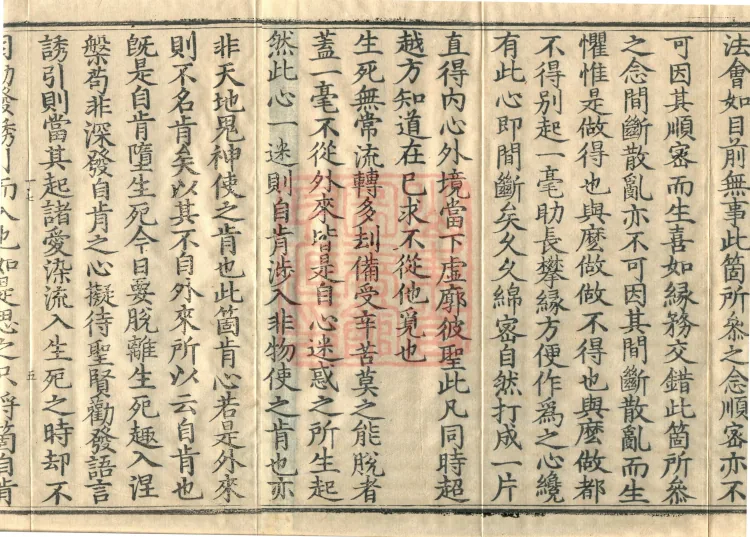 法會如目前無事此箇所叅之念順密亦不
可因其順密而生喜如縁務交錯此箇所叅
之念間斷散亂亦不可因其間斷散亂而生
懼惟是做得也與麽做做不得也與麽做都
不得別起一毫助長攀縁方便作爲之心纔
有此心即間斷矣久久綿密自然打成一片
直得內心外境當下虛廓彼聖此凡同時超
越方知道在已求不從他覓也
生死無常流轉多刦備受辛苦莫之能脫者
蓋一毫不從外來皆是自心迷惑之所生起
然此心一迷則自肯涉入非物使之肯也亦
非天地鬼神使之肯也此箇肯心若是外來
則不名肯矣以其不自外來所以云自肯也
旣是自肯墮生死今日要脫離生死趣入涅
槃苟非深發自肯之心擬待聖賢勸發語言
誘引則當其起諸愛染流入生死之時却不
因勸發誘引而入也如是思之只將箇自肯